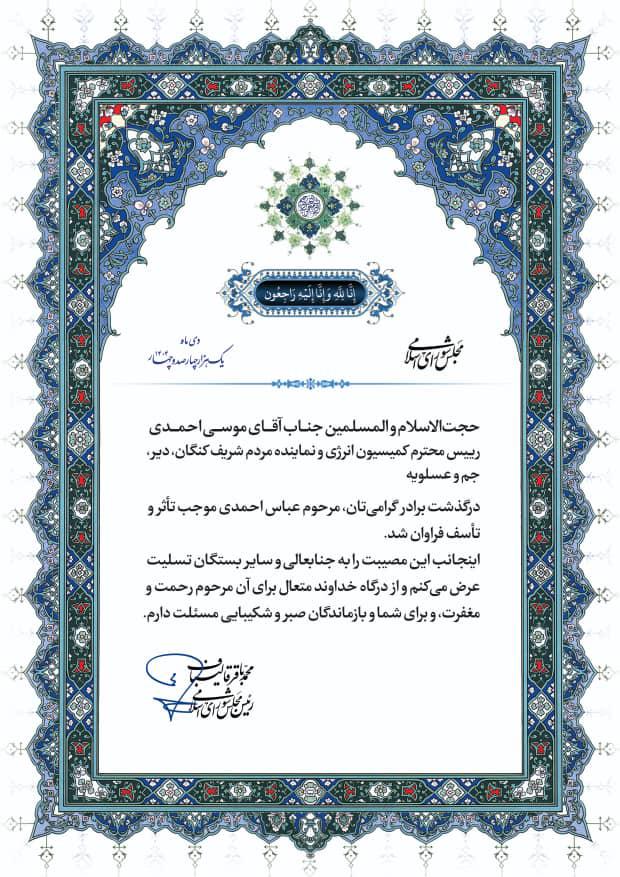 إِنَّا لِلَّهِ وَإِنَّا إِلَيْهِ رَاجِعُونَ
مجلس شورای اسلامی
دی ماه
یک هزار و چهارصد و چهار ۱۴۰۴
حجت‌الاسلام و المسلمین جناب آقای موسی احمدی
رییس محترم کمیسیون انرژی و نماینده مردم شریف کنگان، دیر،
جم و عسلویه
درگذشت برادر گرامی‌تان، مرحوم عباس احمدی موجب تأثر و
تأسف فراوان شد.
اینجانب این مصیبت را به جنابعالی و سایر بستگان تسلیت
عرض می‌کنم و از درگاه خداوند متعال برای آن مرحوم رحمت و
مغفرت، و برای شما و بازماندگان صبر و شکیبایی مسئلت دارم.
محمدباقر قالیباف
رئیس مجلس شورای اسلامی